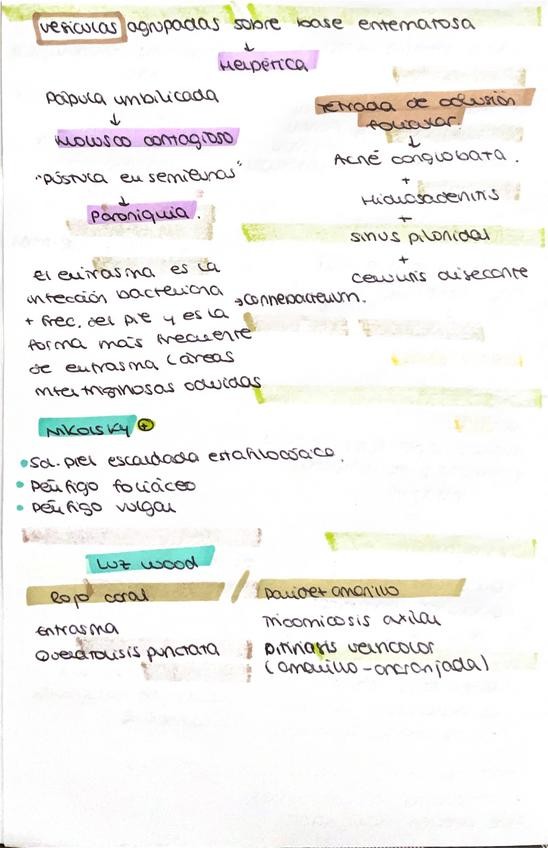 vesículas agrupadas sobre base eritematosa
↓
Herpética
Pápula umbilicada
↓
Molusco contagioso
"Pústula en semilunas"
↓
Paroniquia.
Tétrada de oclusión
folicular.
↓
Acné conglobata.
+
Hidrosadenitis
+
sinus pilonidal
+
celulitis disecante
El eritrasma es la
infección bacteriana → Corinebacterium.
+ frec. del pie y es la
forma más frecuente
de eritrasma (áreas
intertriginosas ocluidas
Nikolsky +
• Sd. piel escaldada estafilocócica.
• Pénfigo foliáceo
• Pénfigo vulgar
Luz wood
Rojo coral / amarillo
Eritrasma
Queratolisis punctata
Tricomicosis axilar
Pitiriasis versicolor
(amarillo-anaranjada)